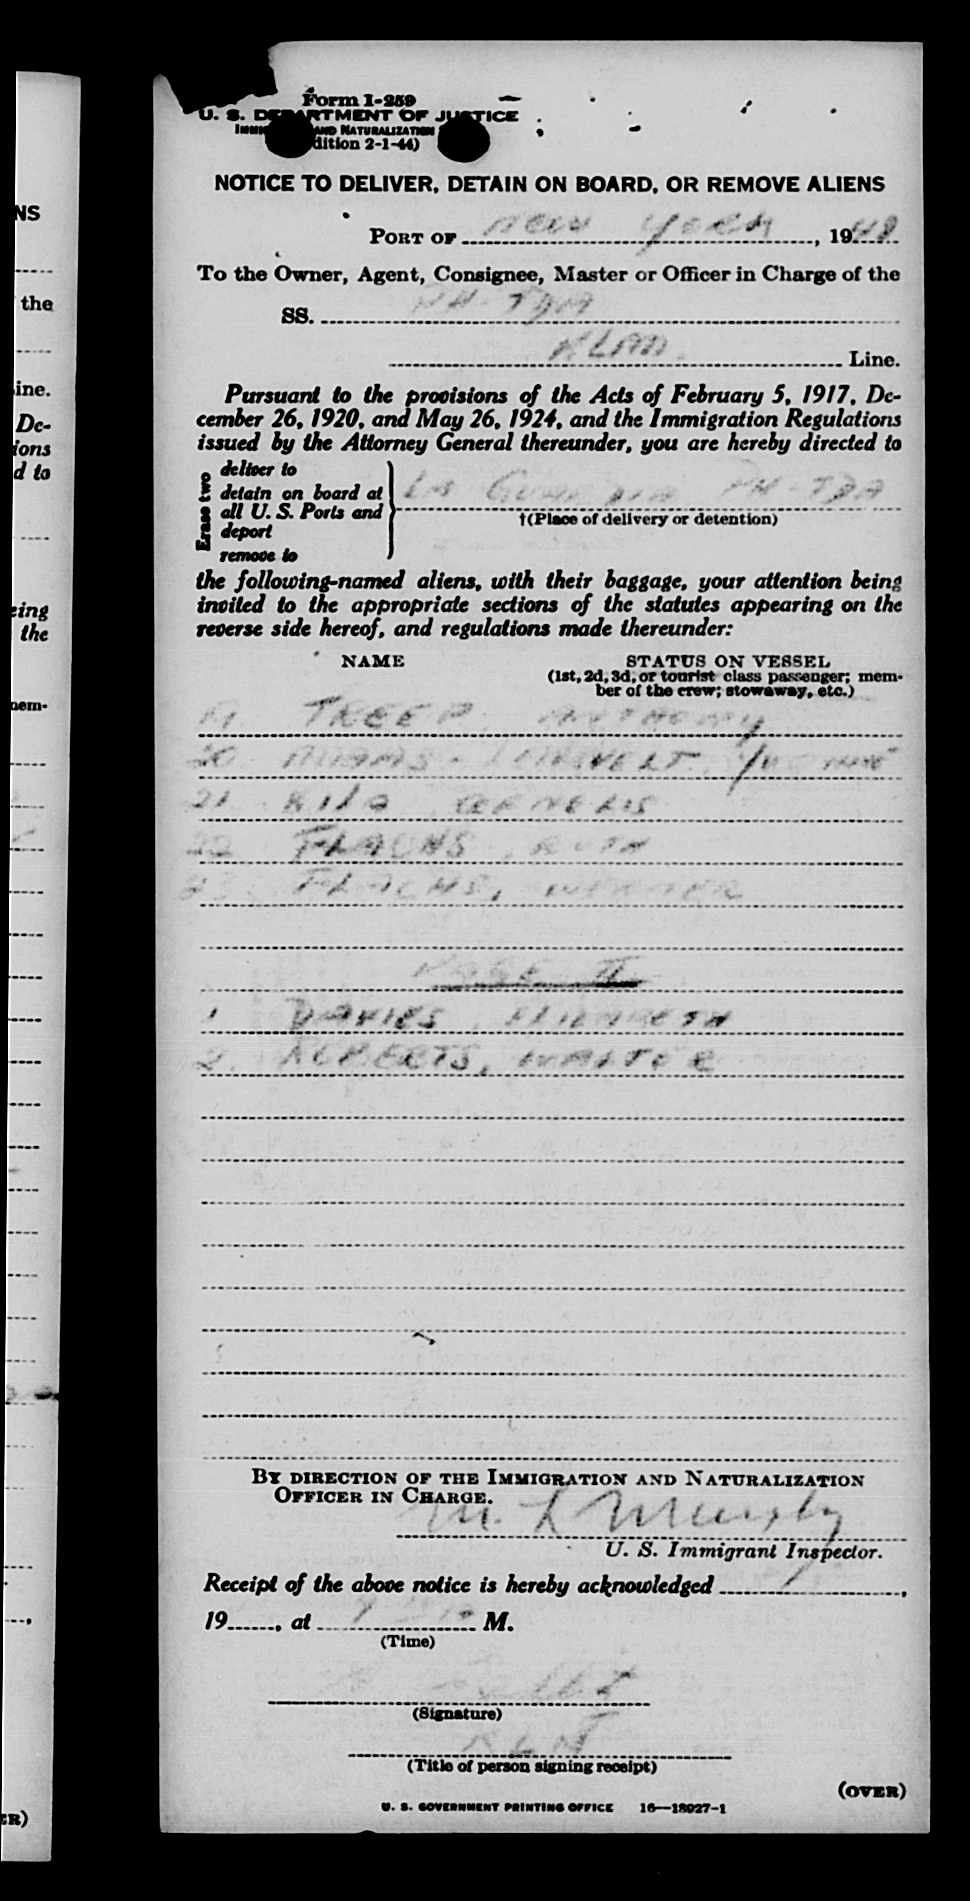 Form I-259
U. S. DEPARTMENT OF JUSTICE
IMMIGRATION AND NATURALIZATION
(Edition 2-1-44)
NOTICE TO DELIVER, DETAIN ON BOARD, OR REMOVE ALIENS
PORT OF New York, 1948
To the Owner, Agent, Consignee, Master or Officer in Charge of the
SS. PH-TDA
KLM Line.
Pursuant to the provisions of the Acts of February 5, 1917, De-
cember 26, 1920, and May 26, 1924, and the Immigration Regulations
issued by the Attorney General thereunder, you are hereby directed to
Erase two
deliver to
detain on board at
all U. S. Ports and
deport
remove to
La Guardia PH-TDA
†(Place of delivery or detention)
the following-named aliens, with their baggage, your attention being
invited to the appropriate sections of the statutes appearing on the
reverse side hereof, and regulations made thereunder:
NAME STATUS ON VESSEL
(1st, 2d, 3d, or tourist class passenger; mem-
ber of the crew; stowaway, etc.)
19 TREEP, ANTHONY
20 ADAMS
21
22 FLACHS, RUTH
23 FLACHS, WERNER
PAGE II
1 DAVIES, ELIZABETH
2 ROBERTS, WALTER
BY DIRECTION OF THE IMMIGRATION AND NATURALIZATION
OFFICER IN CHARGE.
M. L Murphy
U. S. Immigrant Inspector.
Receipt of the above notice is hereby acknowledged
19 , at M.
(Time)
(Signature)
(Title of person signing receipt)
(OVER)
U. S. GOVERNMENT PRINTING OFFICE 16—18927-1
NS
the
ine.
De-
ions
d to
eing
the
nem-
ER)